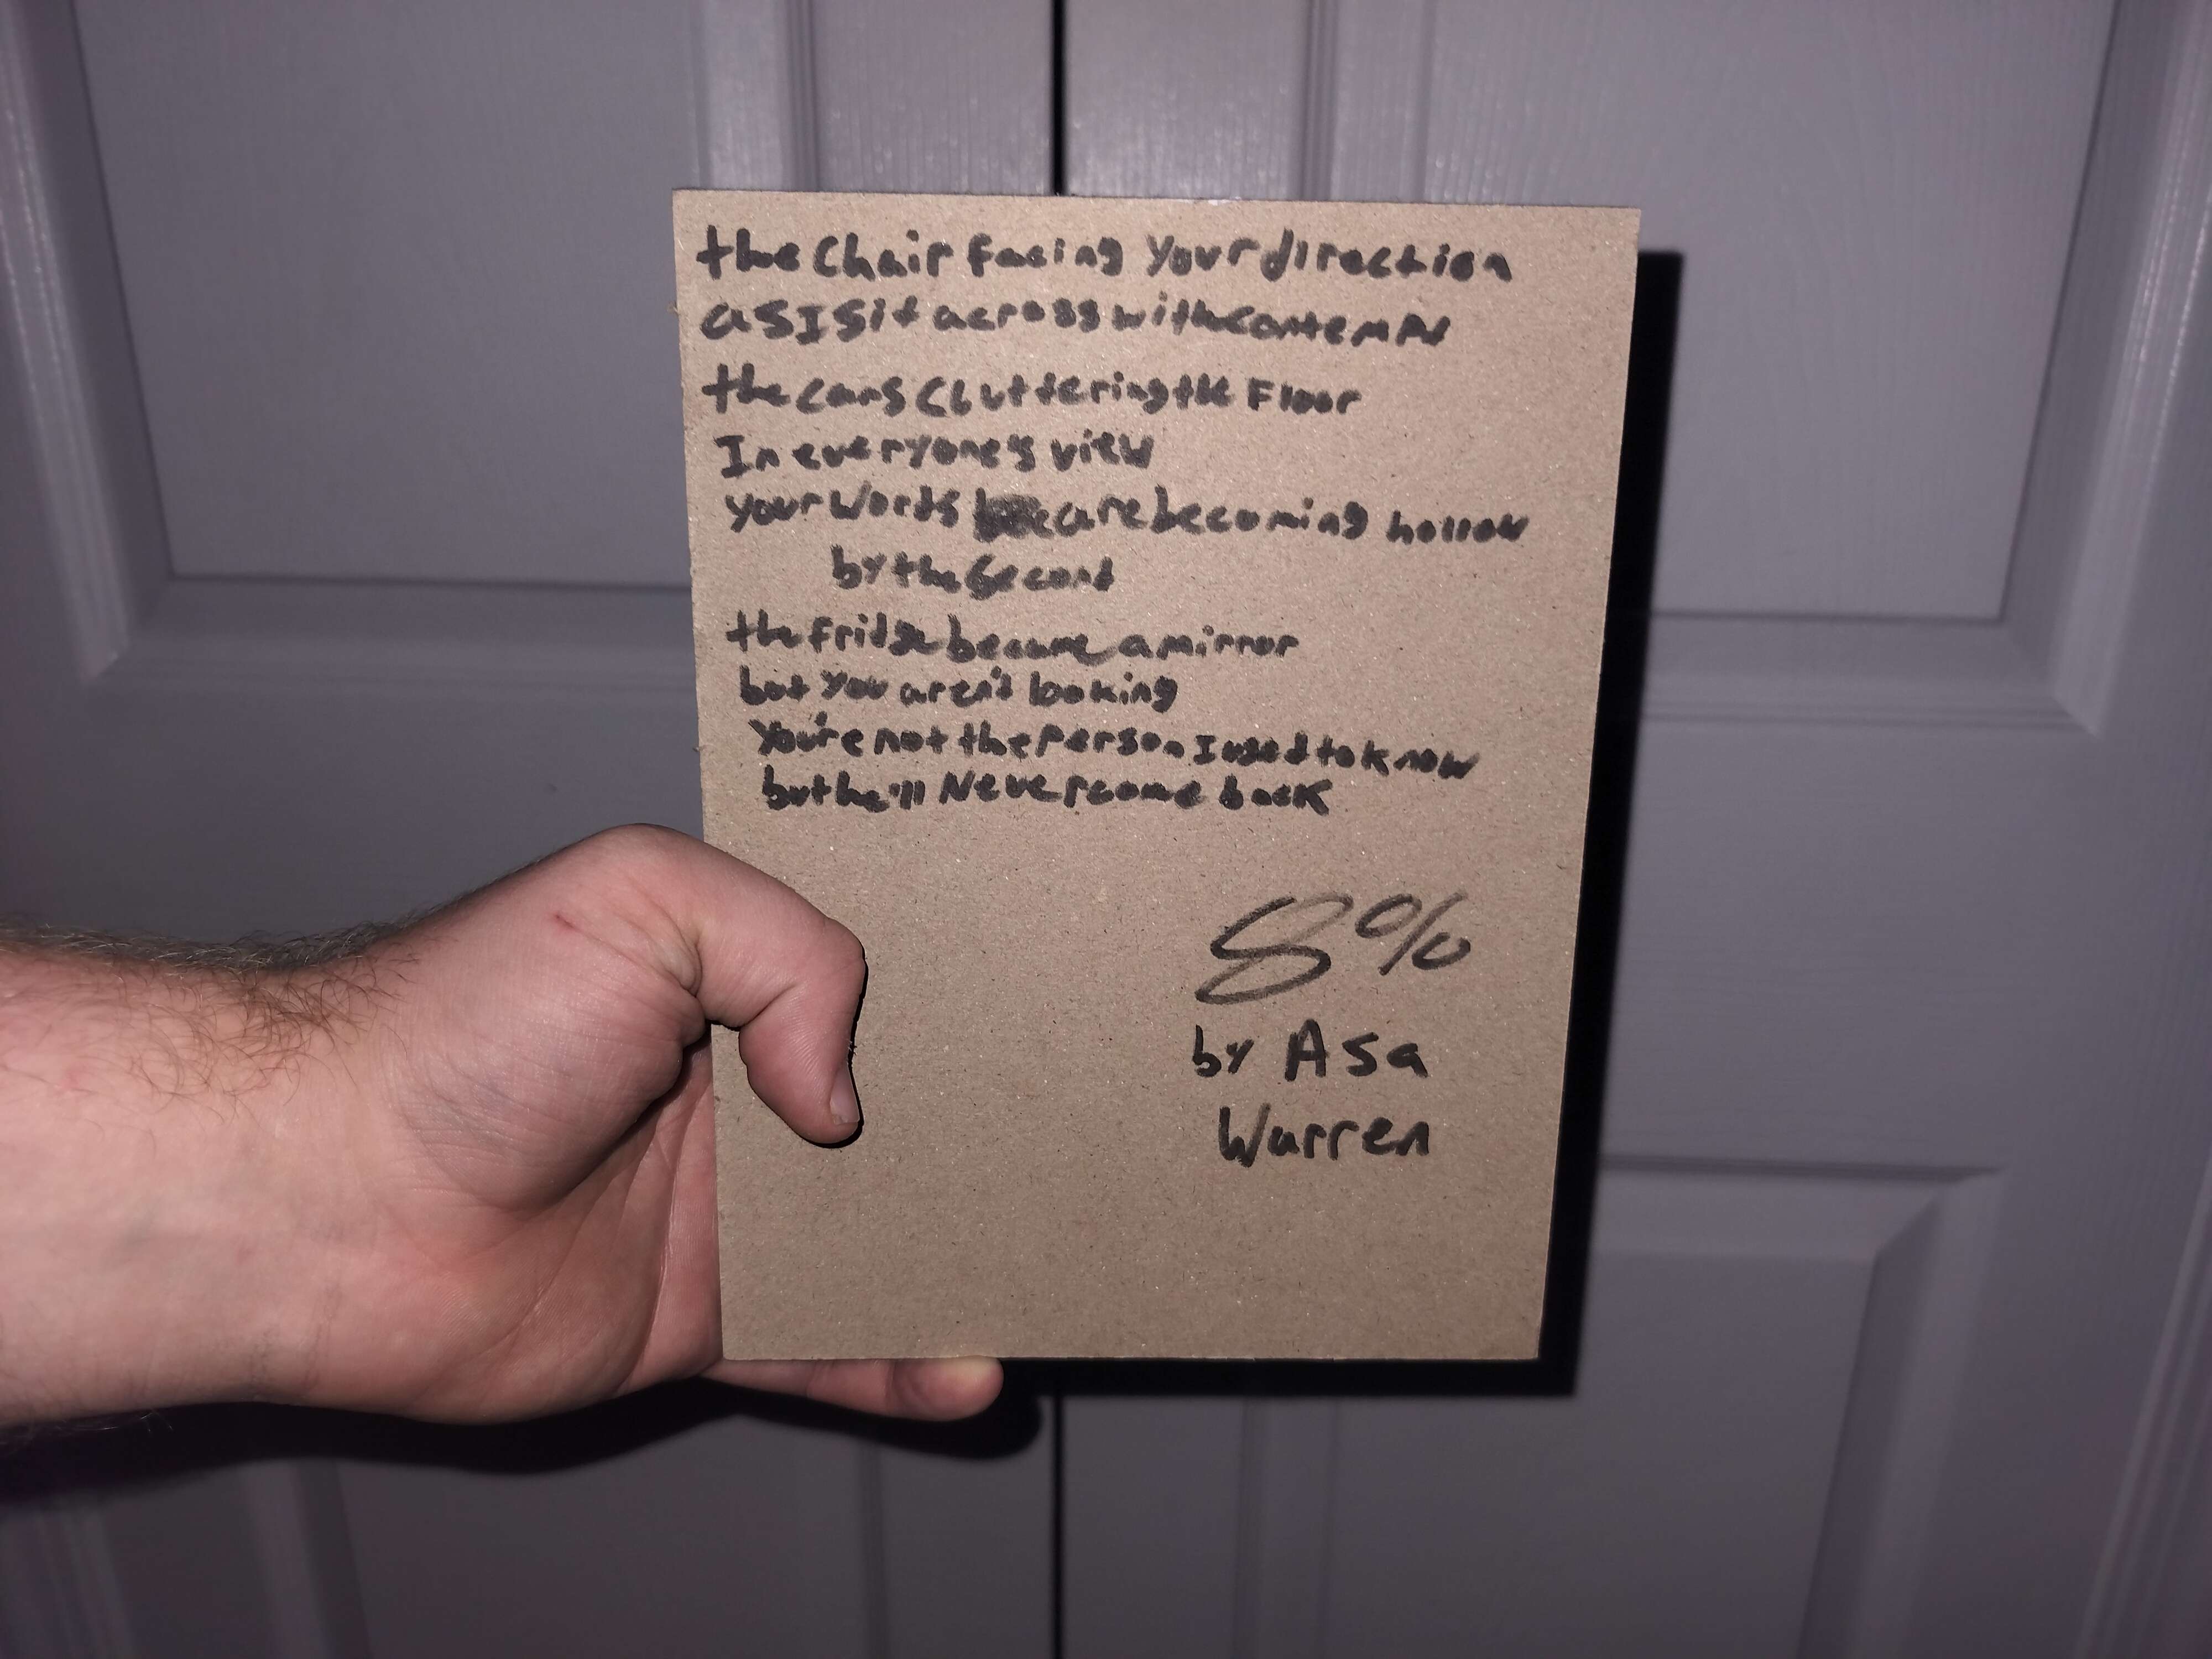 the Chair facing Your direction
as I sit across with contempt
the cans Cluttering the Floor
In everyone's view
your words are becoming hollow
by the Second
the fridge became a mirror
but you aren't looking
You're not the person I used to know
but he'll Never come back
8%
by Asa
Warren